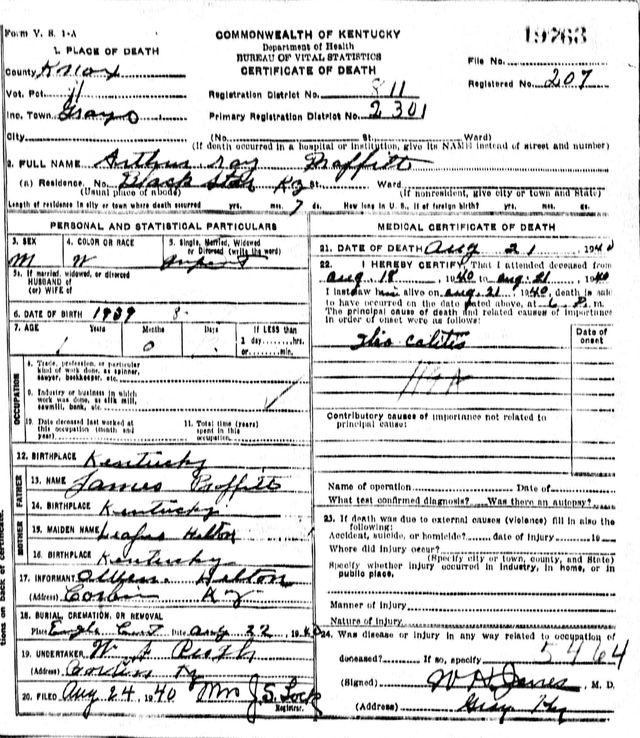 Form V. S. 1-A
COMMONWEALTH OF KENTUCKY
Department of Health
BUREAU OF VITAL STATISTICS
CERTIFICATE OF DEATH
19763
File No.
Registered No. 207
1. PLACE OF DEATH
County Knox
Vot. Pct 11
Inc. Town Grays
City
Registration District No. 811
Primary Registration District No. 2301
(No. St. Ward)
(If death occurred in a hospital or institution, give its NAME instead of street and number)
2. FULL NAME Arthur ray Proffitt
(a) Residence. No. Black Star Ky St. Ward
(Usual place of abode) (If nonresident, give city or town and State)
Length of residence in city or town where death occurred yrs. mos. 7 ds. How long in U. S., if of foreign birth? yrs. mos. ds.
PERSONAL AND STATISTICAL PARTICULARS
3. SEX
M
4. COLOR OR RACE
W
5. Single, Married, Widowed
or Divorced (write the word)
infant
5a. If married, widowed, or divorced
HUSBAND of
(or) WIFE of
6. DATE OF BIRTH 1939 8
7. AGE Years Months Days If LESS than
1 0 1 day, hrs.
or min.
OCCUPATION
8. Trade, profession, or particular
kind of work done, as spinner,
sawyer, bookkeeper, etc.
9. Industry or business in which
work was done, as silk mill,
sawmill, bank, etc.
10. Date deceased last worked at
this occupation (month and
year)
11. Total time (years)
spent in this
occupation
12. BIRTHPLACE Kentucky
FATHER
13. NAME James Proffitt
14. BIRTHPLACE Kentucky
MOTHER
15. MAIDEN NAME Helton
16. BIRTHPLACE Kentucky
17. INFORMANT Helton
(Address) Corbin Ky
18. BURIAL, CREMATION, OR REMOVAL
Place Date Aug 22, 1940
19. UNDERTAKER W
(Address) Corbin Ky
20. FILED Aug 24 1940 Mrs J. S. Lock
Registrar.
MEDICAL CERTIFICATE OF DEATH
21. DATE OF DEATH Aug 21, 1940
22. I HEREBY CERTIFY, That I attended deceased from
aug 18, 1940 to aug 21, 1940
I last saw him alive on aug 21, 1940, death is said
to have occurred on the date stated above, at 6 P. m.
The principal cause of death and related causes of importance
in order of onset were as follows:
Date of
onset
Ilio colitis
119A
Contributory causes of importance not related to
principal cause:
Name of operation Date of
What test confirmed diagnosis? Was there an autopsy?
23. If death was due to external causes (violence) fill in also
the following:
Accident, suicide, or homicide? date of injury 19
Where did injury occur?
(Specify city or town, county, and State)
Specify whether injury occurred in industry, in home, or in
public place.
Manner of injury
Nature of injury
24. Was disease or injury in any way related to occupation of
deceased? If so, specify 5464
(Signed) W H Jones, M. D.
(Address) Gray Ky
tions on back of certificate.